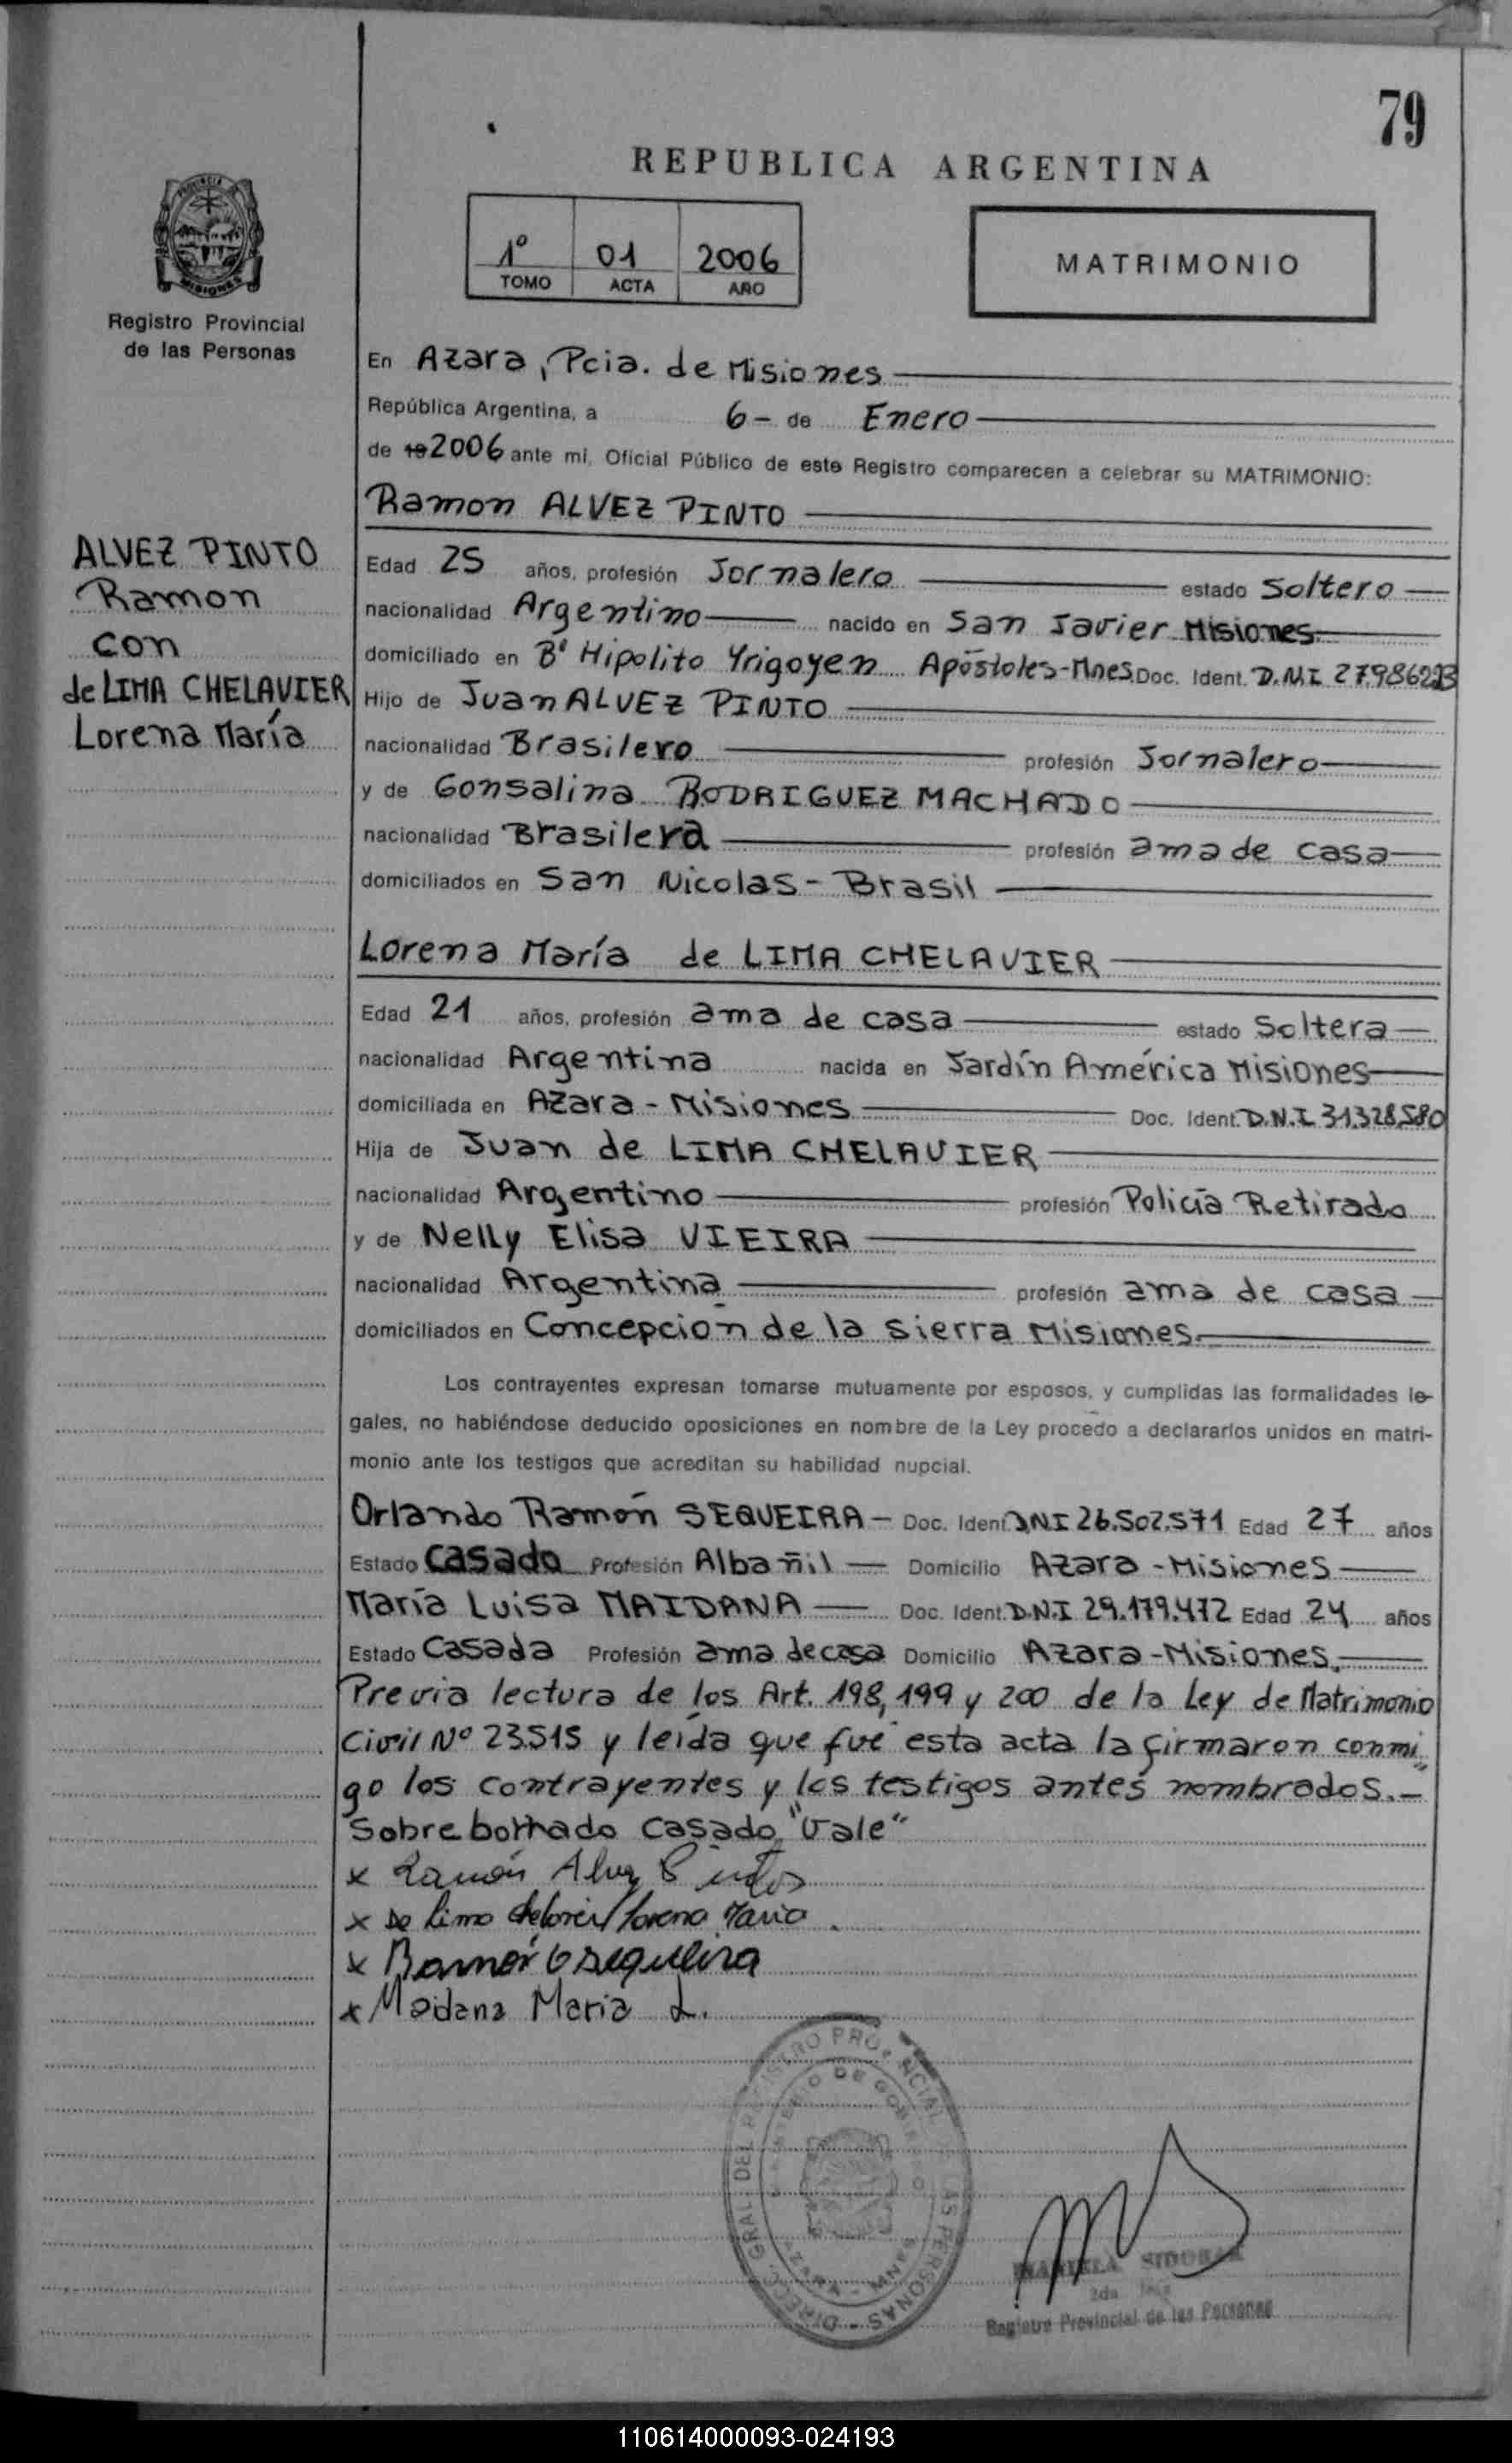 79
REPUBLICA ARGENTINA
PROVINCIA DE
MISIONES
Registro Provincial
de las Personas
1º 01 2006
TOMO ACTA AÑO
MATRIMONIO
En Azara, Pcia. de Misiones
República Argentina, a 6- de Enero
de 19 2006 ante mí, Oficial Público de este Registro comparecen a celebrar su MATRIMONIO:
Ramon ALVEZ PINTO
ALVEZ PINTO
Ramon
con
de LIMA CHELAVIER
Lorena María
Edad 25 años, profesión Jornalero estado Soltero
nacionalidad Argentino nacido en San Javier Misiones
domiciliado en Bº Hipolito Yrigoyen Apóstoles-Mnes Doc. Ident. D.N.I
Hijo de Juan ALVEZ PINTO
nacionalidad Brasilero profesión Jornalero
y de Gonsalina RODRIGUEZ MACHADO
nacionalidad Brasilera profesión ama de casa
domiciliados en San Nicolas - Brasil
Lorena María de LIMA CHELAVIER
Edad 21 años, profesión ama de casa estado Soltera
nacionalidad Argentina nacida en Jardín América Misiones
domiciliada en Azara - Misiones Doc. Ident. D.N.I 31.328.580
Hija de Juan de LIMA CHELAVIER
nacionalidad Argentino profesión Policía Retirado
y de Nelly Elisa VIEIRA
nacionalidad Argentina profesión ama de casa
domiciliados en Concepción de la Sierra Misiones.
Los contrayentes expresan tomarse mutuamente por esposos, y cumplidas las formalidades le-
gales, no habiéndose deducido oposiciones en nombre de la Ley procedo a declararlos unidos en matri-
monio ante los testigos que acreditan su habilidad nupcial.
Orlando Ramón SEQUEIRA - Doc. Ident. DNI 26.502.571 Edad 27 años
Estado Casado Profesión Albañil Domicilio Azara - Misiones
María Luisa MAIDANA Doc. Ident. D.N.I 29.179.472 Edad 24 años
Estado Casada Profesión ama de casa Domicilio Azara - Misiones.
Previa lectura de los Art. 198, 199 y 200 de la Ley de Matrimonio
Civil Nº 23.515 y leída que fué esta acta la firmaron conmi
go los contrayentes y los testigos antes nombrados.-
Sobre borrado casado "Vale"
x Ramón Alvez Pintos
x De Lima Lorena Maria
x Ramón O Sequeira
x Maidana Maria L.
DIRECC. GRAL. DEL REGISTRO PROVINCIAL DE LAS PERSONAS
MINISTERIO DE GOBIERNO
AZARA - MNES
Registro Provincial de las Personas
110614000093-024193